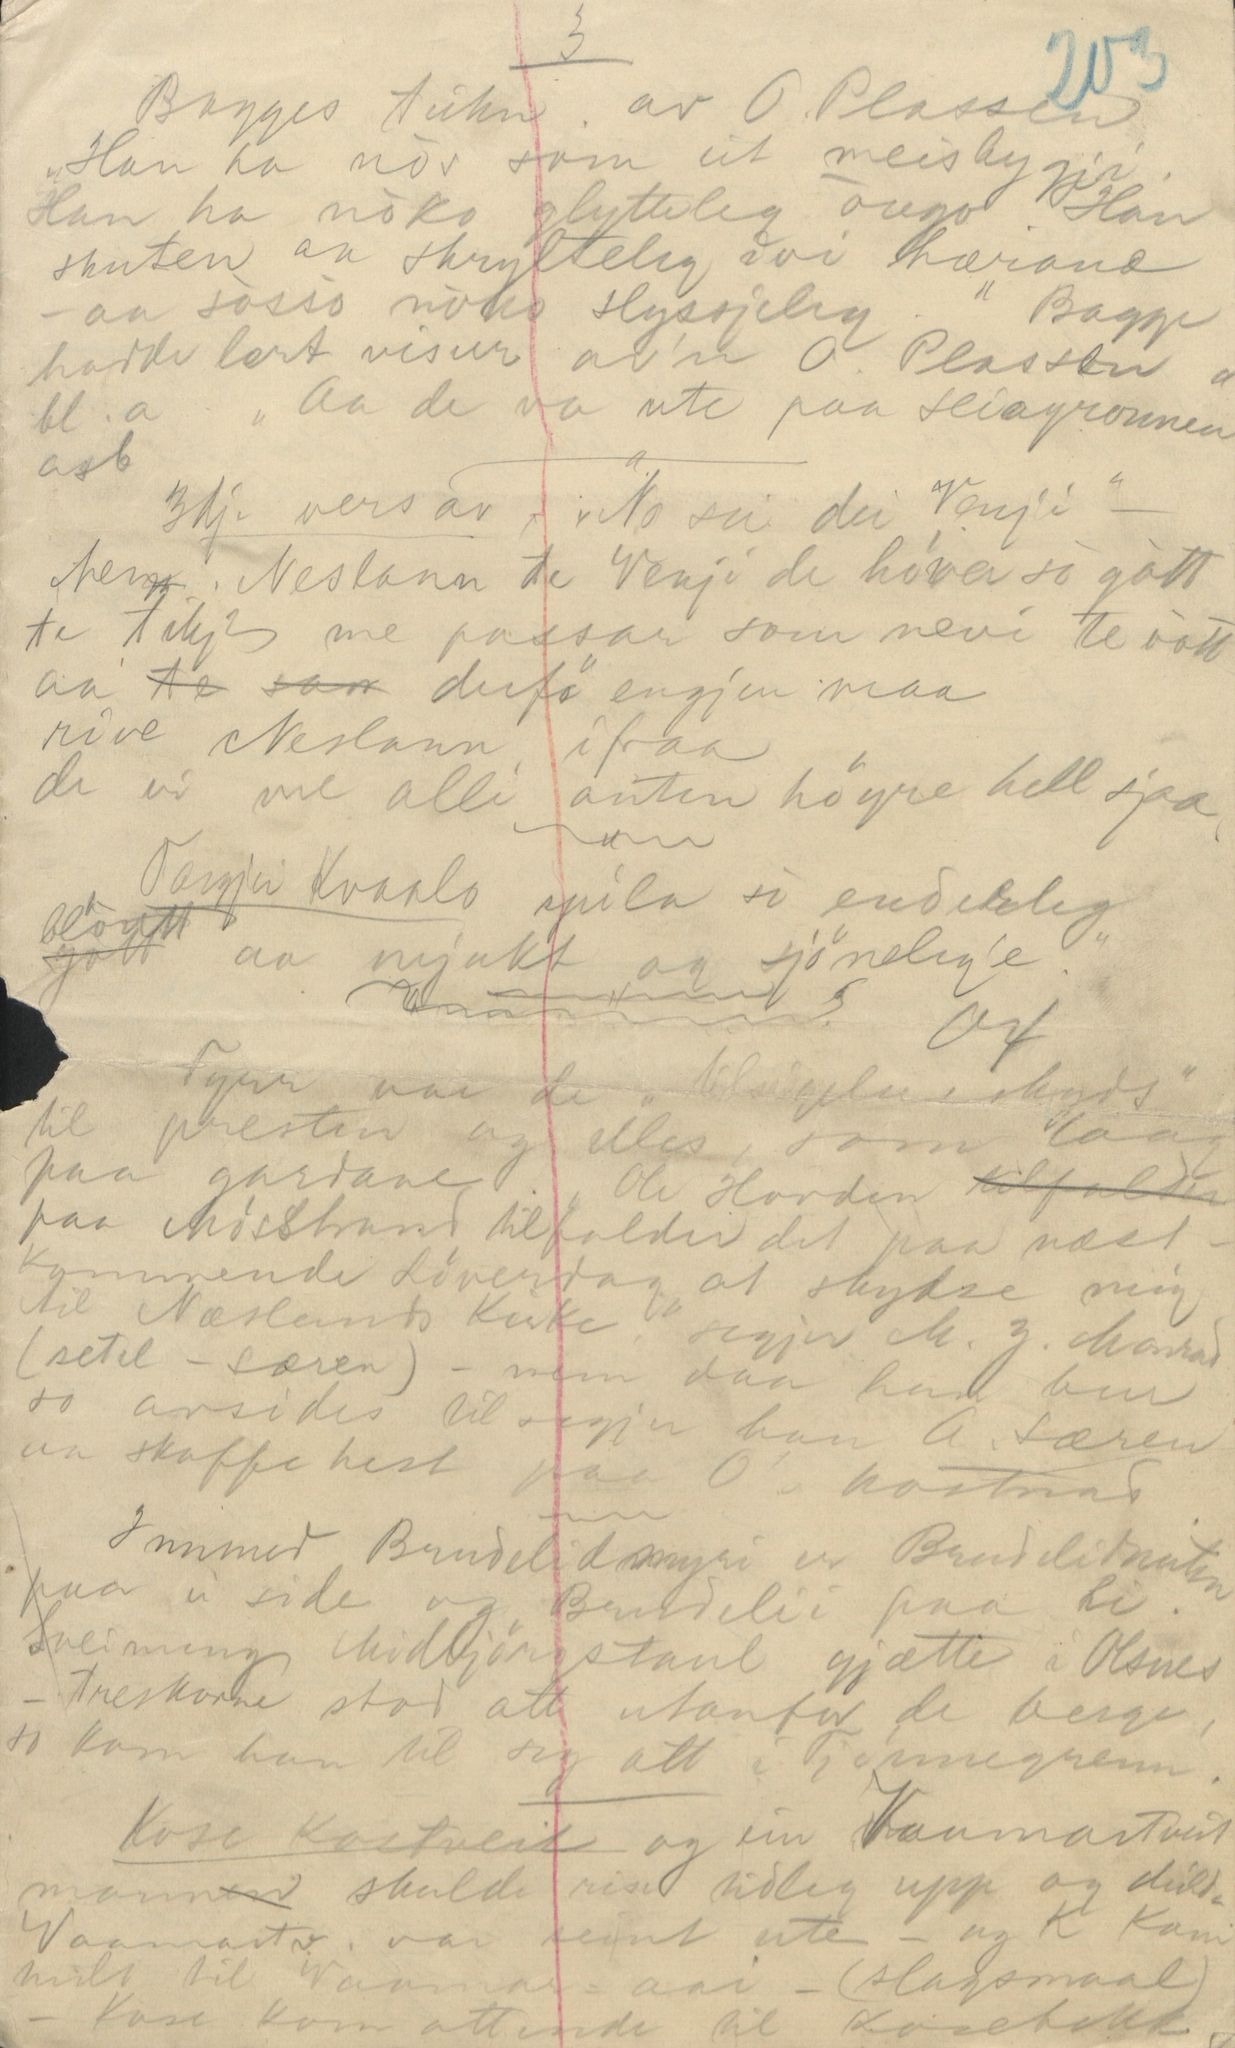 3
203
Bagges tukn. av O. Plassen
"Han ha nòs som eit meisbygji.
Han ha nòko glytteleg öugo Han
skuten aa skrylteleg ivi hærane
- aa sòsso nòko slyssjeleg." Bagge
hadde lært visur av'n O. Plassen
bl. a "Aa de va ute paa seiagrounnen
asb
3dje vers av "No sei dei Venji" -
Neslann te Venji de höver so gött
te me passar som nevi te òtt
aa te san derfö engjen maa
rive Neslann ifraa
de vi me alli anten höyre hell sjaa,
Targjei Kvaalo spila so endeleg
blöytt
gött aa mjukt og sjöneleg'e."
Fyrr var de "tilsigelse skyds"
til presten og elles, som laag
paa gardane. "Ole Hovden tilfalder
paa Mösstrand tilfalder det paa næst-
kommende Löverdag at skydse mig
til Næslands Kirke," segjer M. J. Monrad
(setel - særen) - men daa han bur
so avsides tilsegjer han A. Særen
aa skaffe hest paa O's kostnad
Immed Brudelidmyri er Brudelidnuten
paa ei side og Brudelii paa hi.
Sveinung Midbjörgstaul gjætte i Olsnes
- treskorne stod att utanfor de berge,
so kom han til seg att i Tjönnegrenn.
Kose Kostveit og ein Vaamartveit
mannen skulde rise tidleg upp og
Vaamartv. var seint ute - og K kom
midt til Vaamar-aai - (slagsmaal)
- Kose kom attende til Kosebekk